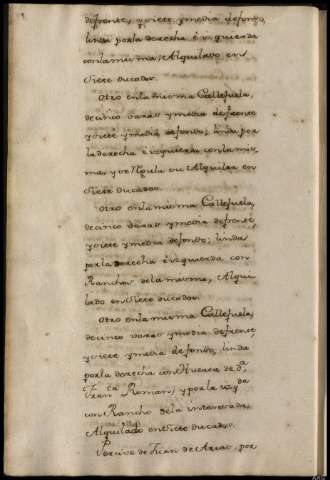 defrente, y siete ymedia defondo,
linda porla derecha è izquierda
conlamisma, Alquilado en
Siete ducados.
Otro enlamisma Callejuela,
decinco varas ymedia defrente
y siete ymedia defondo; linda por
la derecha è izquierda conlamis,
ma; y se Alquila en
Siete ducados.
Otro enlamisma Callejuela,
decinco varas ymedia defrente,
y siete ymedia defondo; linda
porla derecha è izquierda con
Ranchos delamisma, Alqui
lado en siete ducados.
Otro enlamisma Callejuela,
decinco varas ymedia defrente,
y siete ymedia defondo, linda
porla derecha con Huerta de d.ª
Fran.ca Roman, y porla izq.da
con Rancho dela interesada
Alquilado en siete ducados.
Percive de Juan de Arias, por